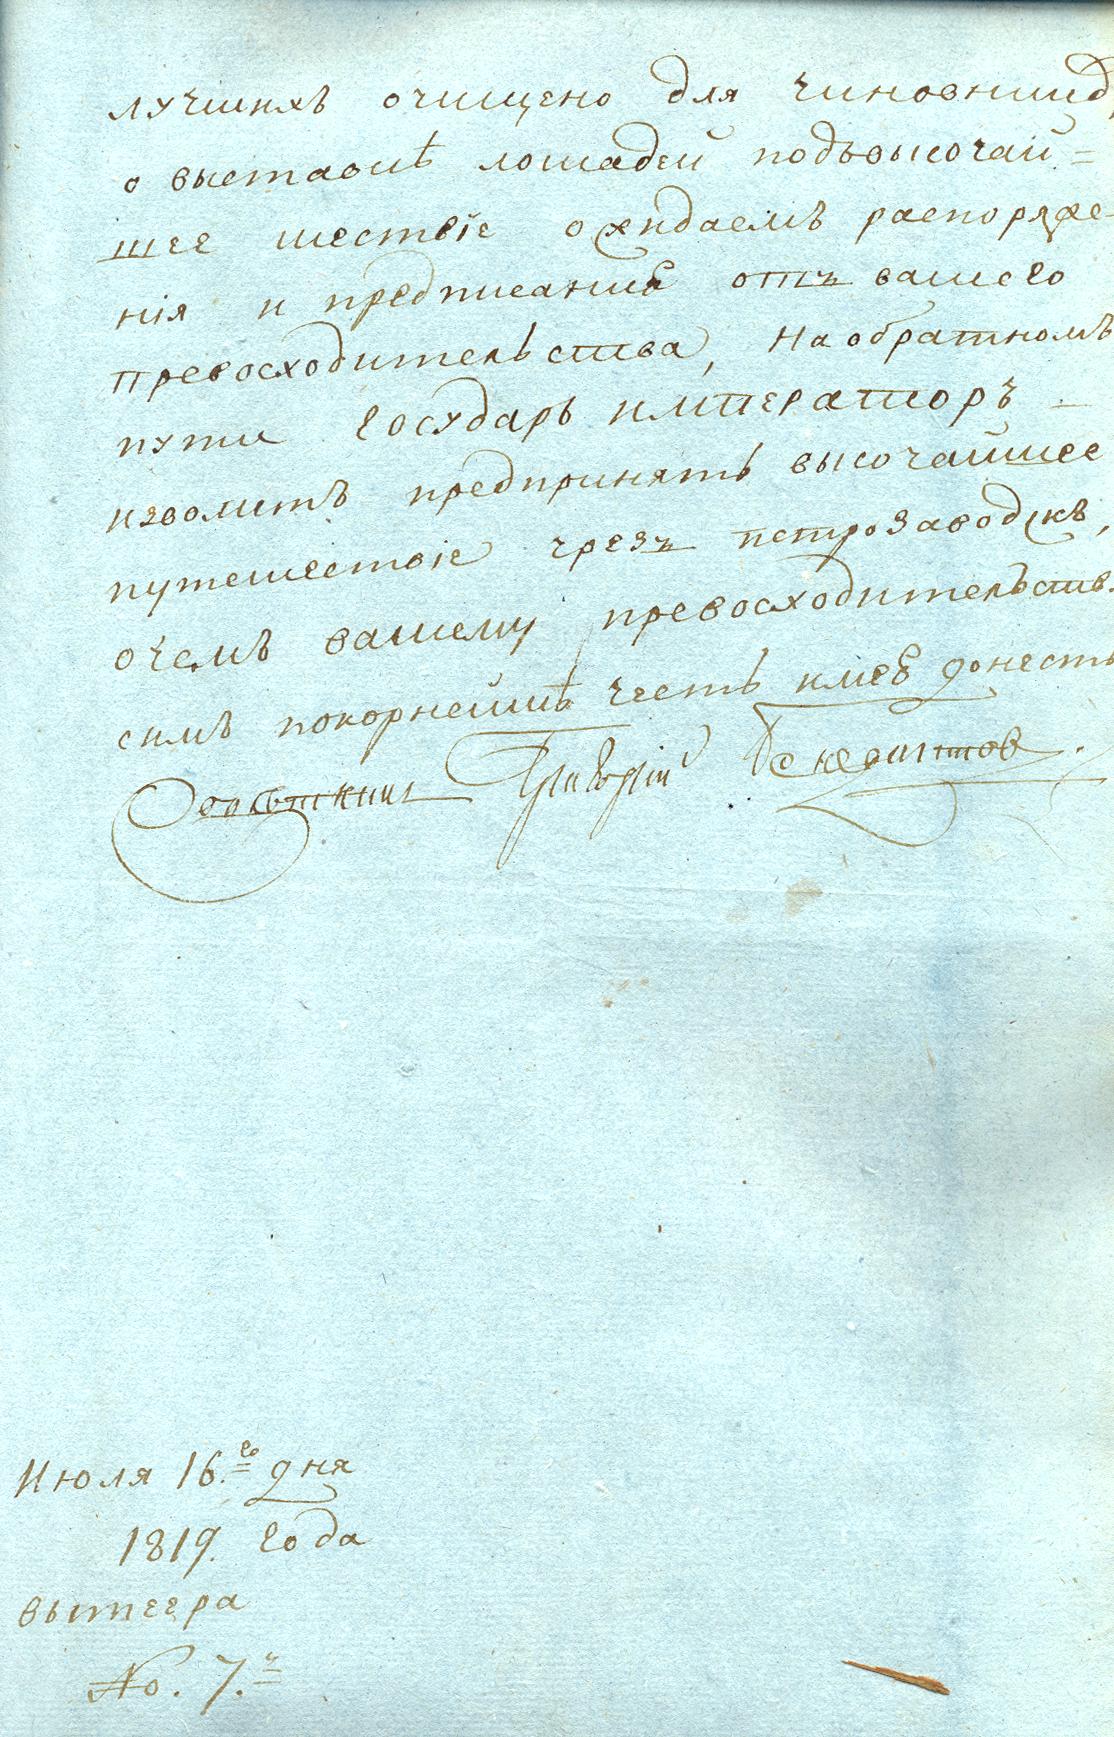 лучшихъ очищено для чиновник
о выставкѣ лошадей подъвысочай=
шее шествіе ожидаемъ распоряже-
нія и предписания отъ вашего
превосходительства, На обратномъ
пути Государь императоръ
изволитъ предпринять высочайшее
путешествіе чрезъ петрозаводскъ,
очемъ вашему превосходительств.
симъ покорнейшѣ честь имеъ донесть
Григорій
Июля 16.го дня
1819. Года
вытегра
No. 7.й